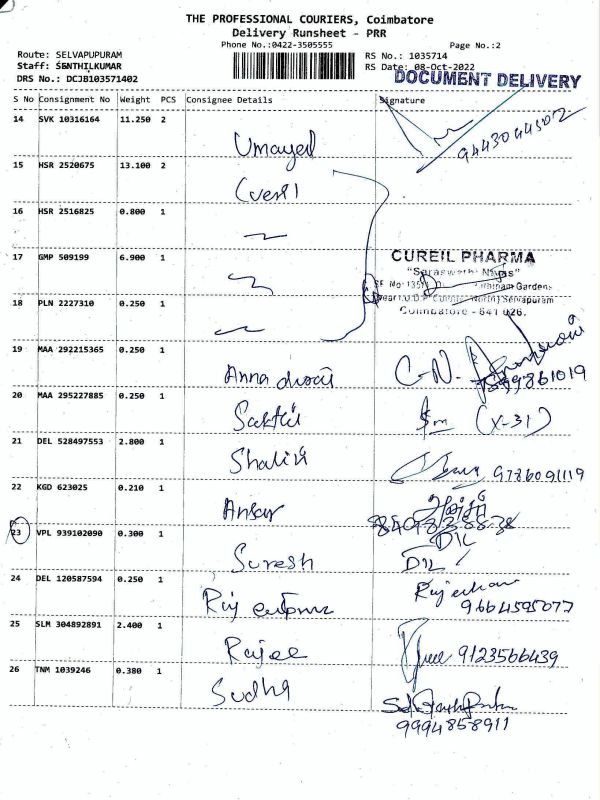 THE PROFESSIONAL COURIERS, Coimbatore
Delivery Runsheet - PRR
Phone No.:0422-3505555 Page No.:2
Route: SELVAPUPURAM RS No.: 1035714
Staff: SENTHILKUMAR RS Date: 08-Oct-2022
DRS No.: DCJB103571402 DOCUMENT DELIVERY
S No Consignment No Weight PCS Consignee Details Signature
14 SVK 10316164 11.250 2 Umayal 9443044502
15 HSR 2520675 13.100 2
16 HSR 2516825 0.800 1
17 GMP 509199 6.900 1
CUREIL PHARMA
"Saraswathi Nagas"
18 PLN 2227310 0.250 1
Selvapuram
Coimbatore - 641 026.
19 MAA 292215365 0.250 1 C-N.
20 MAA 295227885 0.250 1 Sakthi (X-31)
21 DEL 528497553 2.800 1 Shalini 9786091119
22 KGD 623025 0.210 1 Ansar
23 VPL 939102090 0.300 1 Suresh DIL
24 DEL 120587594 0.250 1 9664595077
25 SLM 304892891 2.400 1 Rajee 9123566439
26 TNM 1039246 0.380 1 Sudha
9994858911